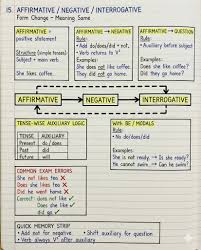 15. AFFIRMATIVE / NEGATIVE / INTERROGATIVE
Form Change - Meaning Same
AFFIRMATIVE =
positive statement
Structure (simple tenses)
Subject + main verb
She likes coffee.
AFFIRMATIVE → NEGATIVE
Rule:
• Add do/does/did + not,
• Verb returns to V¹
Examples:
She does not like coffee.
They did not go home.
AFFIRMATIVE → QUESTION
Rule:
• Auxiliary before subject
Examples:
Does she like coffee?
Did they go home?
AFFIRMATIVE
NEGATIVE
INTERROGATIVE
TENSE-WISE AUXILIARY LOGIC
TENSE AUXILIARY
Present do / does
Past did
Future will
WITH BE / MODALS
• No do/does/did
Examples:
She is not ready. → Is she ready?
He cannot swim. → Can he swim?
COMMON EXAM ERRORS
She not likes tea ✗
Does she likes tea ✗
Did he went home ✗
Correct: does not like ✓
Does she like ✓
did go ✓
QUICK MEMORY STRIP
• Add not for negative
• Shift auxiliary for question
• Verb always V¹ after auxiliary